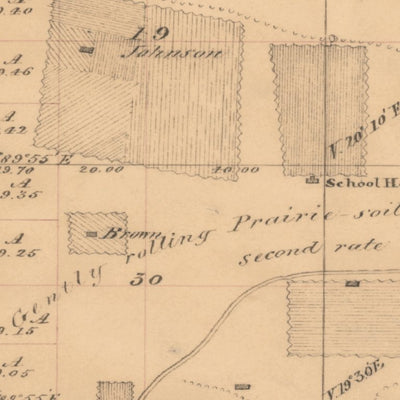 9.40
19
Johnson
A
9.46
A
.42
V. 20° 10' E
89°55' E
9.70
20.00
40.00
A
9.35
School H
Brown
A
9.25
Gently rolling Prairie-soil
second rate
30
A
9.15
A
9.05
V. 19° 30' E.